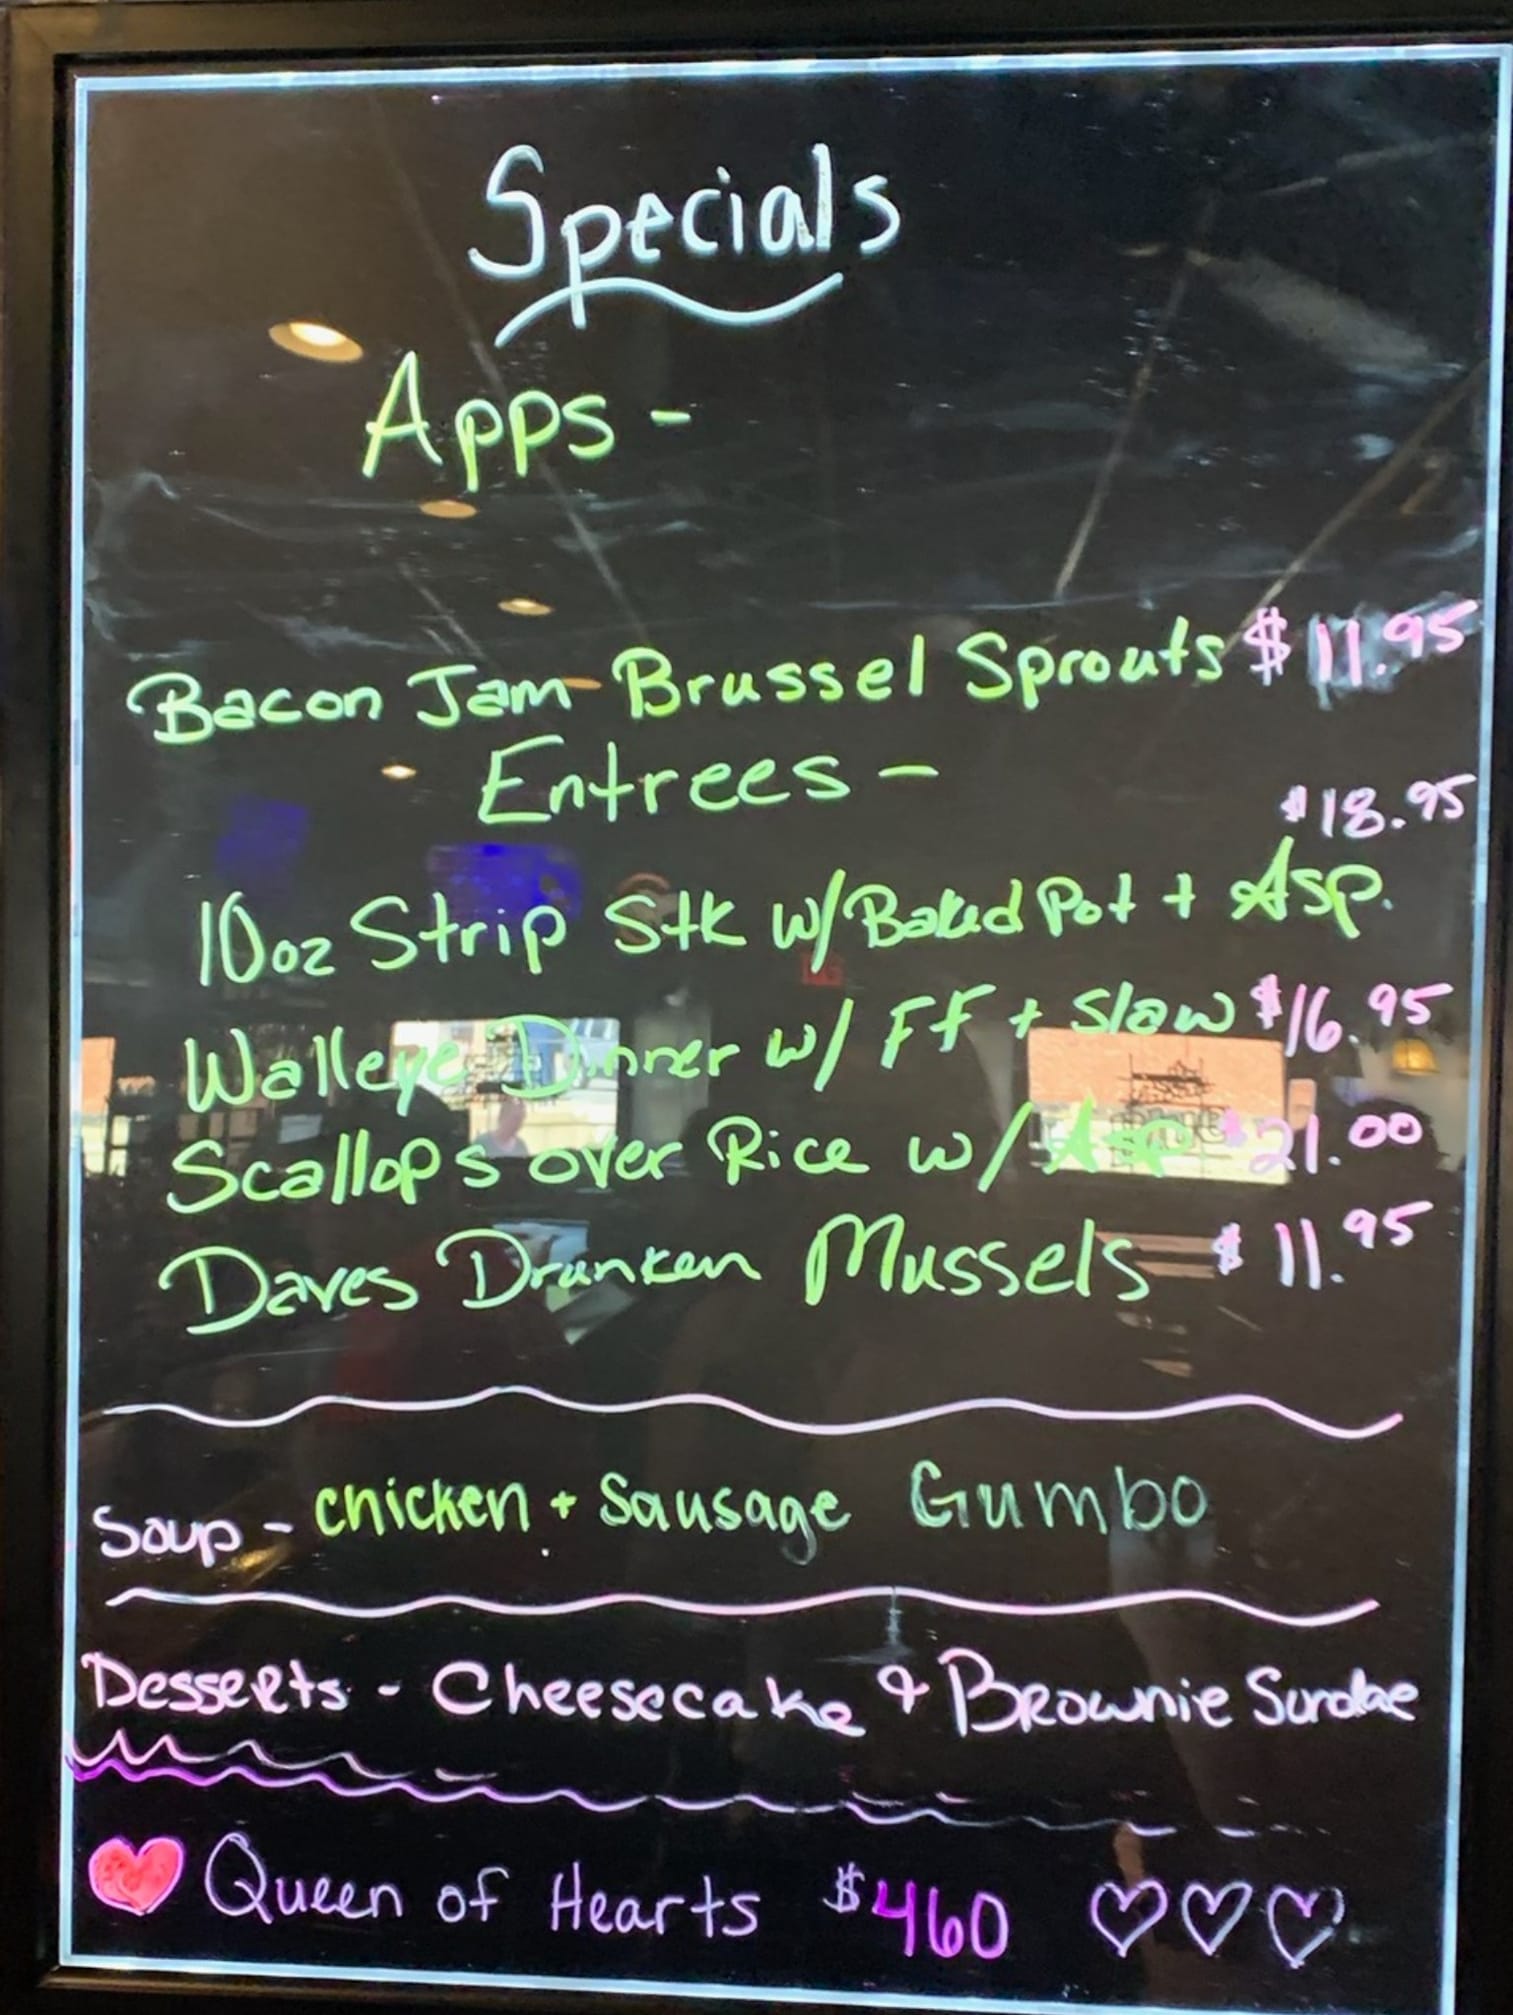 Specials
Apps -
Bacon Jam Brussel Sprouts $11.95
Entrees -
$18.95
10oz Strip Stk w/Baked Pot + Asp.
Walleye Dinner w/ FF + Slaw $16.95
Scallops over Rice w/ Asp $21.00
Daves Drunken Mussels $11.95
Soup - Chicken + Sausage Gumbo
Desserts - Cheesecake & Brownie Sundae
Queen of Hearts $460